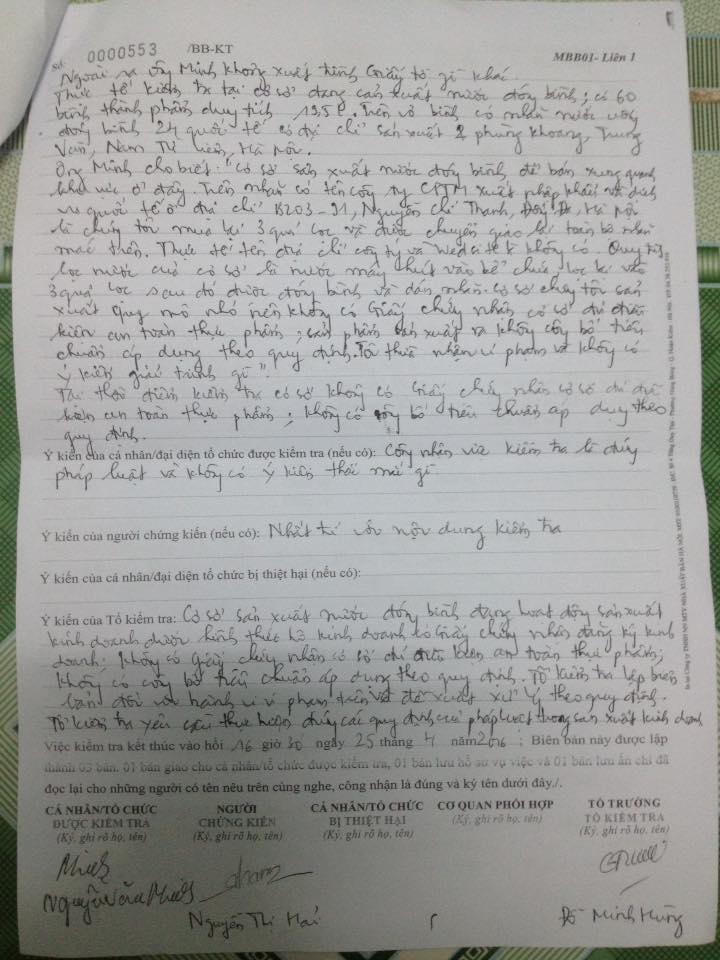 Số: 0000553 /BB-KT MBB01- Liên 1
Ngoài ra ông Minh không xuất trình Giấy tờ gì khác
Thực tế kiểm tra tại cơ sở đang sản xuất nước đóng bình; có 60
bình thành phẩm dung tích 19,5l. Trên vỏ bình có nhãn nước uống
đóng bình 24 quốc tế có địa chỉ sản xuất 2 phùng khoang, Trung
Văn, Nam Từ Liêm, Hà Nội.
Ông Minh cho biết: "Cơ sở sản xuất nước đóng bình để bán xung quanh
khu vực ở đây. Trên nhãn có tên công ty CPTM xuất nhập khẩu và dịch
vụ quốc tế ở địa chỉ B203-91, Nguyễn Chí Thanh, Đống Đa, Hà Nội
là chúng tôi mua lại 3 quả lọc và được chuyển giao lại toàn bộ nhãn
mác trên. Thực tế tên địa chỉ công ty và Website là không có. Quy trình
lọc nước của cơ sở là nước máy chứa vào bể chứa, lọc vào
3 quả lọc sau đó được đóng bình và dán nhãn. Cơ sở chúng tôi sản
xuất quy mô nhỏ nên không có Giấy chứng nhận cơ sở đủ điều
kiện an toàn thực phẩm; sản phẩm sản xuất ra không công bố tiêu
chuẩn áp dụng theo quy định. Tôi thừa nhận vi phạm và không có
ý kiến giải trình gì".
Tại thời điểm kiểm tra cơ sở không có Giấy chứng nhận cơ sở đủ điều
kiện an toàn thực phẩm; không có công bố tiêu chuẩn áp dụng theo
quy định.
Ý kiến của cá nhân/đại diện tổ chức được kiểm tra (nếu có): Công nhận việc kiểm tra là đúng
pháp luật và không có ý kiến thắc mắc gì
Ý kiến của người chứng kiến (nếu có): Nhất trí với nội dung kiểm tra
Ý kiến của cá nhân/đại diện tổ chức bị thiệt hại (nếu có):
Ý kiến của Tổ kiểm tra: Cơ sở sản xuất nước đóng bình đang hoạt động sản xuất
kinh doanh dưới hình thức hộ kinh doanh có Giấy chứng nhận đăng ký kinh
doanh. Không có giấy chứng nhận cơ sở đủ điều kiện an toàn thực phẩm;
không có công bố tiêu chuẩn áp dụng theo quy định. Tổ kiểm tra lập biên
bản đối với hành vi vi phạm trên và đề xuất xử lý theo quy định.
Tổ kiểm tra yêu cầu thực hiện đúng các quy định của pháp luật trong sản xuất kinh doanh
Việc kiểm tra kết thúc vào hồi 16 giờ 30 ngày 25 tháng 4 năm 2016; Biên bản này được lập
thành 03 bản. 01 bản giao cho cá nhân/tổ chức được kiểm tra, 01 bản lưu hồ sơ vụ việc và 01 bản lưu ấn chỉ đã
đọc lại cho những người có tên nêu trên cùng nghe, công nhận là đúng và ký tên dưới đây./.
CÁ NHÂN/TỔ CHỨC NGƯỜI CÁ NHÂN/TỔ CHỨC CƠ QUAN PHỐI HỢP TỔ TRƯỞNG
ĐƯỢC KIỂM TRA CHỨNG KIẾN BỊ THIỆT HẠI (Ký, ghi rõ họ, tên) TỔ KIỂM TRA
(Ký, ghi rõ họ, tên) (Ký, ghi rõ họ, tên) (Ký, ghi rõ họ, tên) (Ký, ghi rõ họ, tên)
Minh
Nguyễn Văn Minh
Nguyễn Thị Hải Đỗ Minh Hùng